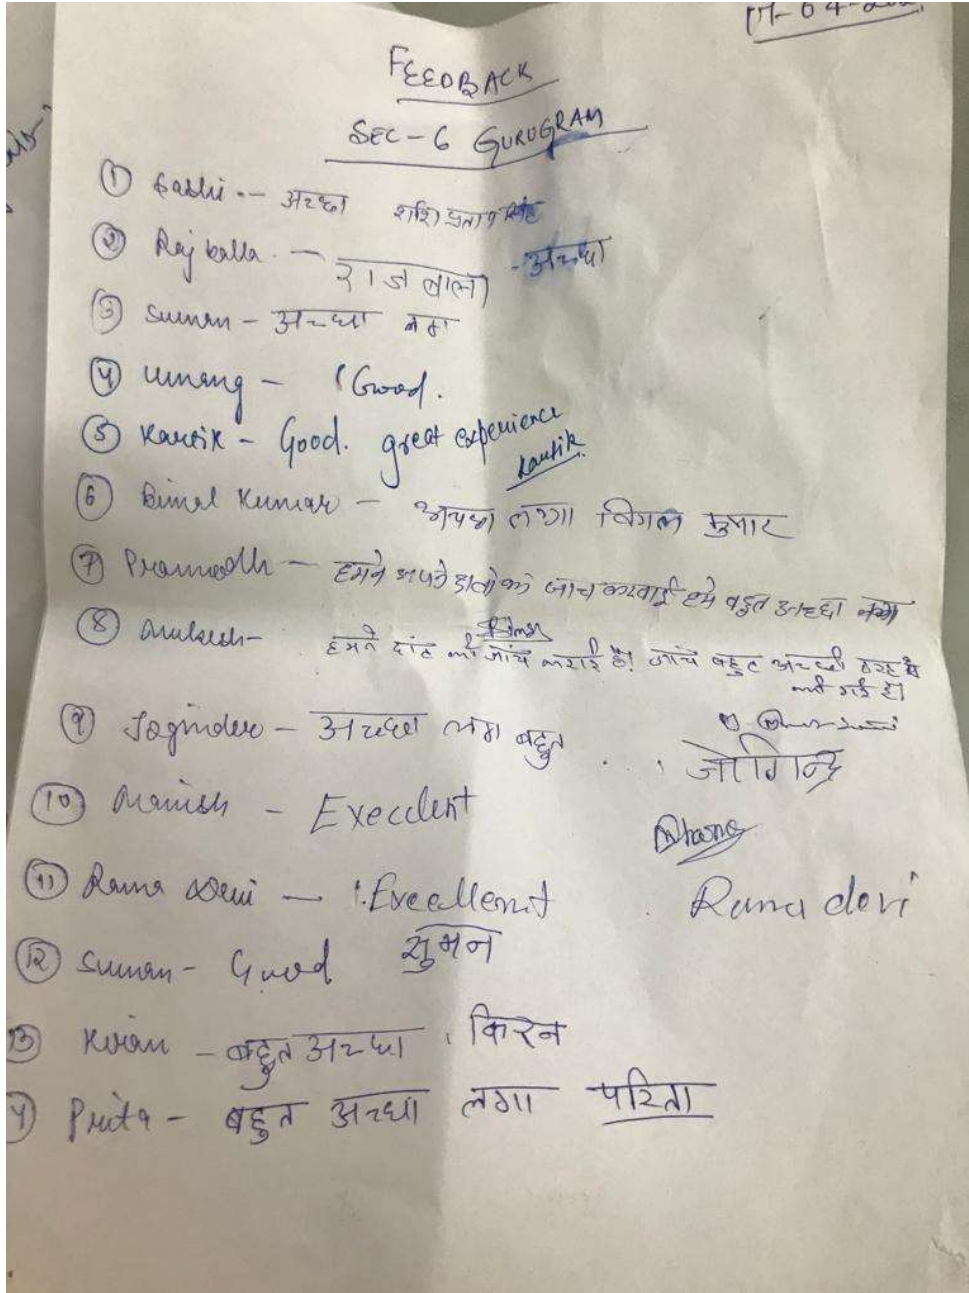 17-04-
FEEDBACK
SEC-6 GURUGRAM
① Sashi -- अच्छा शशि प्रताप सिंह
② Raj balla - राज बाला - अच्छा
③ Suman - अच्धा लगा
④ Umang - Good.
⑤ Kartik - Good. great experience
Kartik
⑥ Bimal Kumar - अच्छा लगा विमल कुमार
⑦ Pramodh - हमने अपने दातो की जाच करवाई हमे बहुत अच्छा लगा
⑧ Mukesh - हमने दांत की जाँच कराई है। जाँच बहुत अच्छी तरह से
की गई है।
⑨ Joginder - अच्छा लगा बहुत जोगिन्द्र
⑩ Manish - Execelent
⑪ Rama Devi - Execellent Rama devi
⑫ Suman - Good सुमन
⑬ Kiran - बहुत अच्धा किरन
Prita - बहुत अच्धा लगा परिता